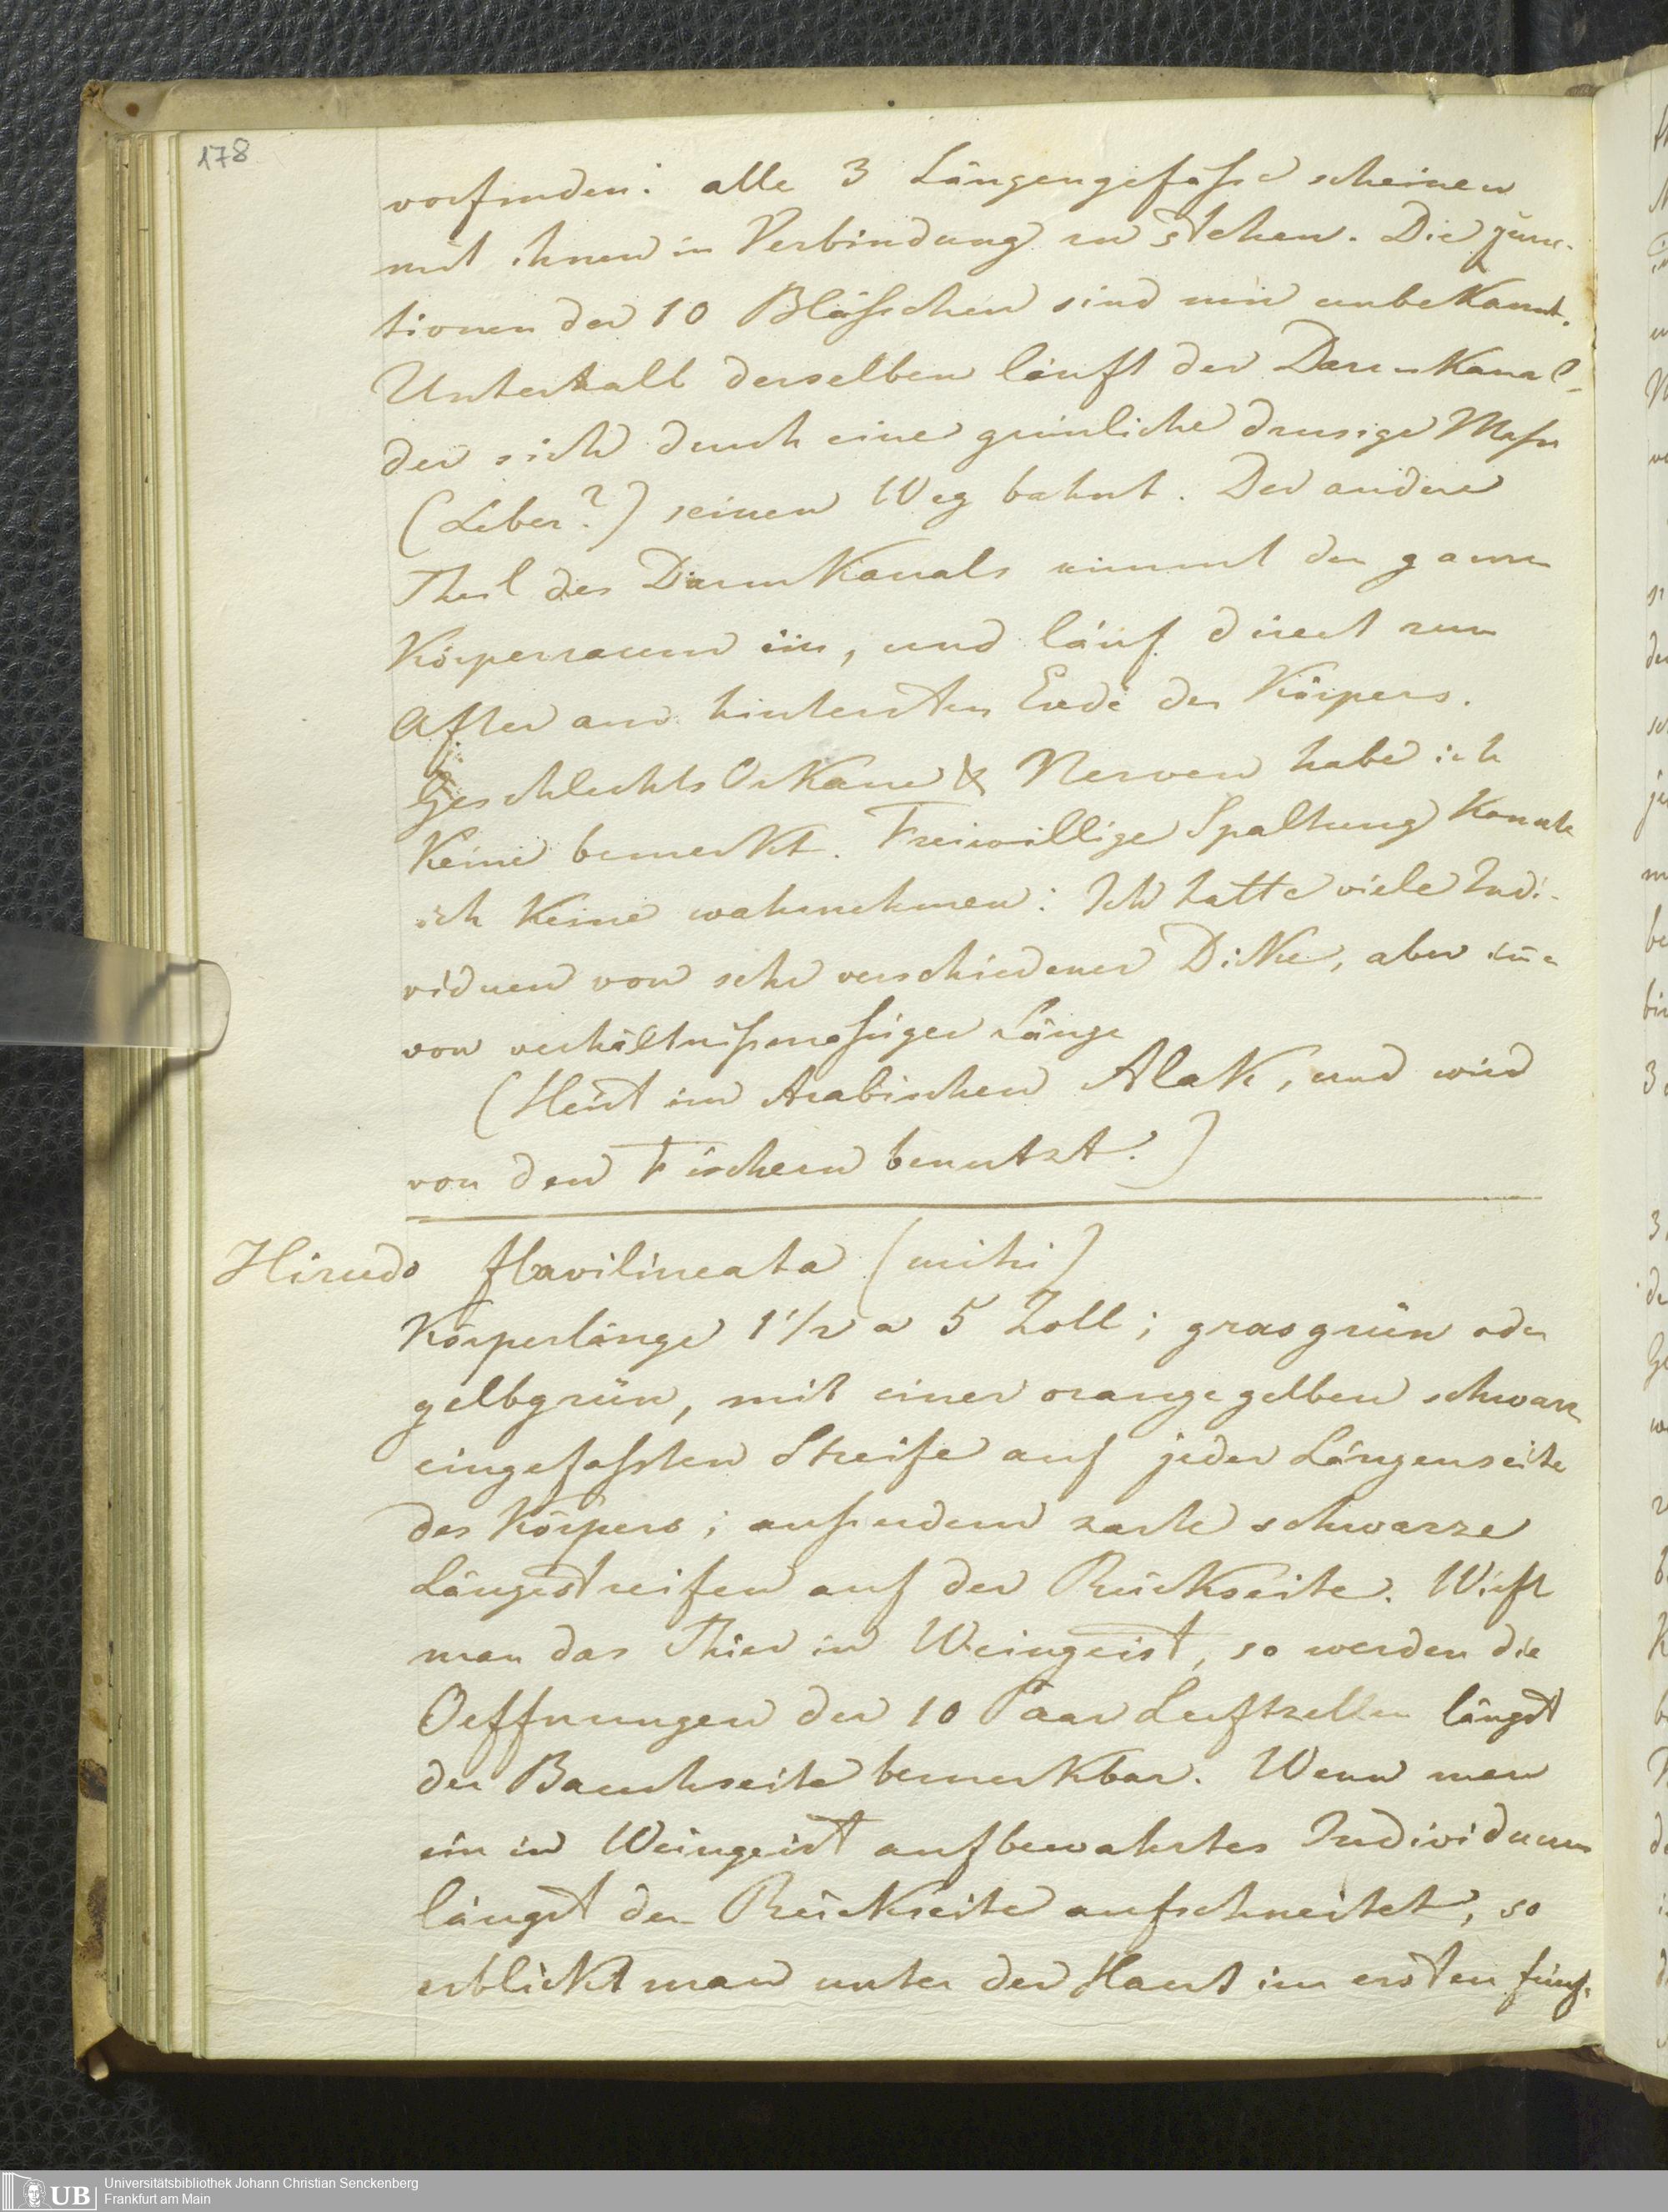 178
vorfinden: alle 3 Längengefäße scheinen
mit ihnen in Verbindung zu stehen. Die Func-
tionen der 10 Bläßchen sind mir unbekannt.
Unterhalb derselben läuft der Darmkanal
der sich durch eine grünliche drusige Maße
(Leber?) seinen Weg bahnt. Der andere
Theil des Darmkanals nimmt den ganzen
Körperraum ein, und läuf direct zum
After am hintersten Ende des Körpers.
Geschlechts Orkane & Nerven habe ich
keine bemerkt. Freiwillige Spaltung konnte
ich keine wahrnehmen: Ich hatte viele Indi-
viduen von sehr verschiedener Dike, aber
von verhältnißmäßiger Länge
(Heist im Arabischen Alak, und wird
von den Fischern benutzt.)
Hirudo flavilineata (mihi)
Körperlänge 1 1/2 a 5 Zoll; grasgrün oder
gelbgrün, mit einer orangegelben schwarz
eingefaßten Streife auf jeder Längenseite
des Körpers; außerdem zarte schwarze
Längestreifen auf der Rückseite. Wirft
man das Thier in Weingeist, so werden die
Oeffnungen der 10 Paar Luftzellen längst
der Bauchseite bemerkbar. Wenn man
ein in Weingeist aufbewahrtes Individuum
längst der Rückseite aufschneitet, so
erblickt man unter der Haut im ersten fünf-
UB
Universitätsbibliothek Johann Christian Senckenberg
Frankfurt am Main